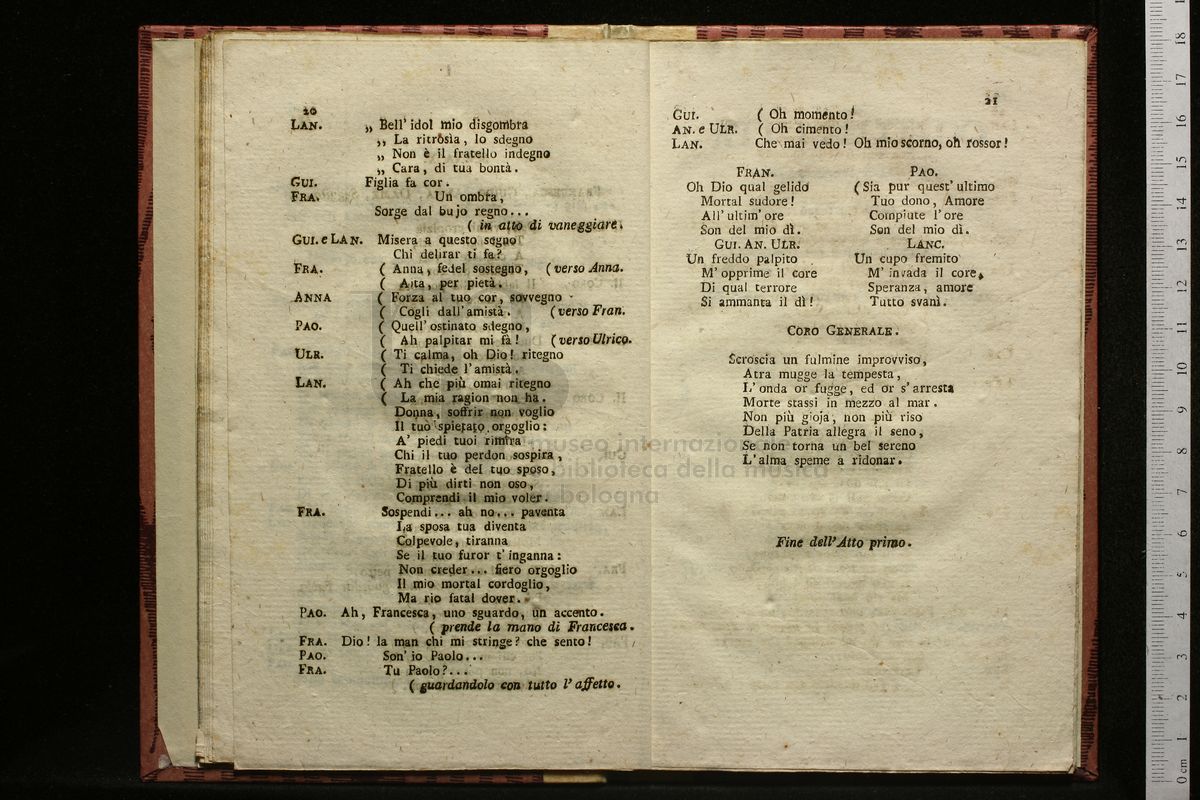 20
LAN. „ Bell' idol mio disgombra
„ La ritrosìa, lo sdegno
„ Non è il fratello indegno
„ Cara, di tua bontà.
GUI. Figlia fa cor.
FRA. Un ombra,
Sorge dal bujo regno...
( in atto di vaneggiare.
GUI. e LAN. Misera a questo segno
Chi delirar ti fa?
FRA. ( Anna, fedel sostegno, (verso Anna.
( Aita, per pietà.
ANNA ( Forza al tuo cor, sovvegno
( Cogli dall'amistà. (verso Fran.
PAO. ( Quell' ostinato sdegno,
( Ah palpitar mi fà! (verso Ulrico.
ULR. ( Ti calma, oh Dio! ritegno
( Ti chiede l'amistà.
LAN. ( Ah che più omai ritegno
( La mia ragion non ha.
Donna, soffrir non voglio
Il tuo spietato orgoglio:
A' piedi tuoi rimira
Chi il tuo perdon sospira,
Fratello è del tuo sposo,
Di più dirti non oso,
Comprendi il mio voler.
FRA. Sospendi... ah no... paventa
La sposa tua diventa
Colpevole, tiranna
Se il tuo furor t'inganna:
Non creder... fiero orgoglio
Il mio mortal cordoglio,
Ma rio fatal dover.
PAO. Ah, Francesca, uno sguardo, un accento.
( prende la mano di Francesca.
FRA. Dio! la man chi mi stringe? che sento!
PAO. Son' io Paolo...
FRA. Tu Paolo?...
( guardandolo con tutto l'affetto.
21
GUI. ( Oh momento!
AN. e ULR. ( Oh cimento!
LAN. Che mai vedo! Oh mio scorno, oh rossor!
FRAN.
Oh Dio qual gelido
Mortal sudore!
All' ultim' ore
Son del mio dì.
GUI. AN. ULR.
Un freddo palpito
M' opprime il core
Di qual terrore
Si ammanta il dì!
PAO.
(Sia pur quest' ultimo
Tuo dono, Amore
Compiute l'ore
Son del mio dì.
LANC.
Un cupo fremito
M' invada il core,
Speranza, amore
Tutto svanì.
CORO GENERALE.
Scroscia un fulmine improvviso,
Atra mugge la tempesta,
L' onda or fugge, ed or s' arresta
Morte stassi in mezzo al mar.
Non più gioja, non più riso
Della Patria allegra il seno,
Se non torna un bel sereno
L' alma speme a ridonar.
Fine dell' Atto primo.
museo internazionale
biblioteca della musica
bologna
0 cm 1 2 3 4 5 6 7 8 9 10 11 12 13 14 15 16 17 18